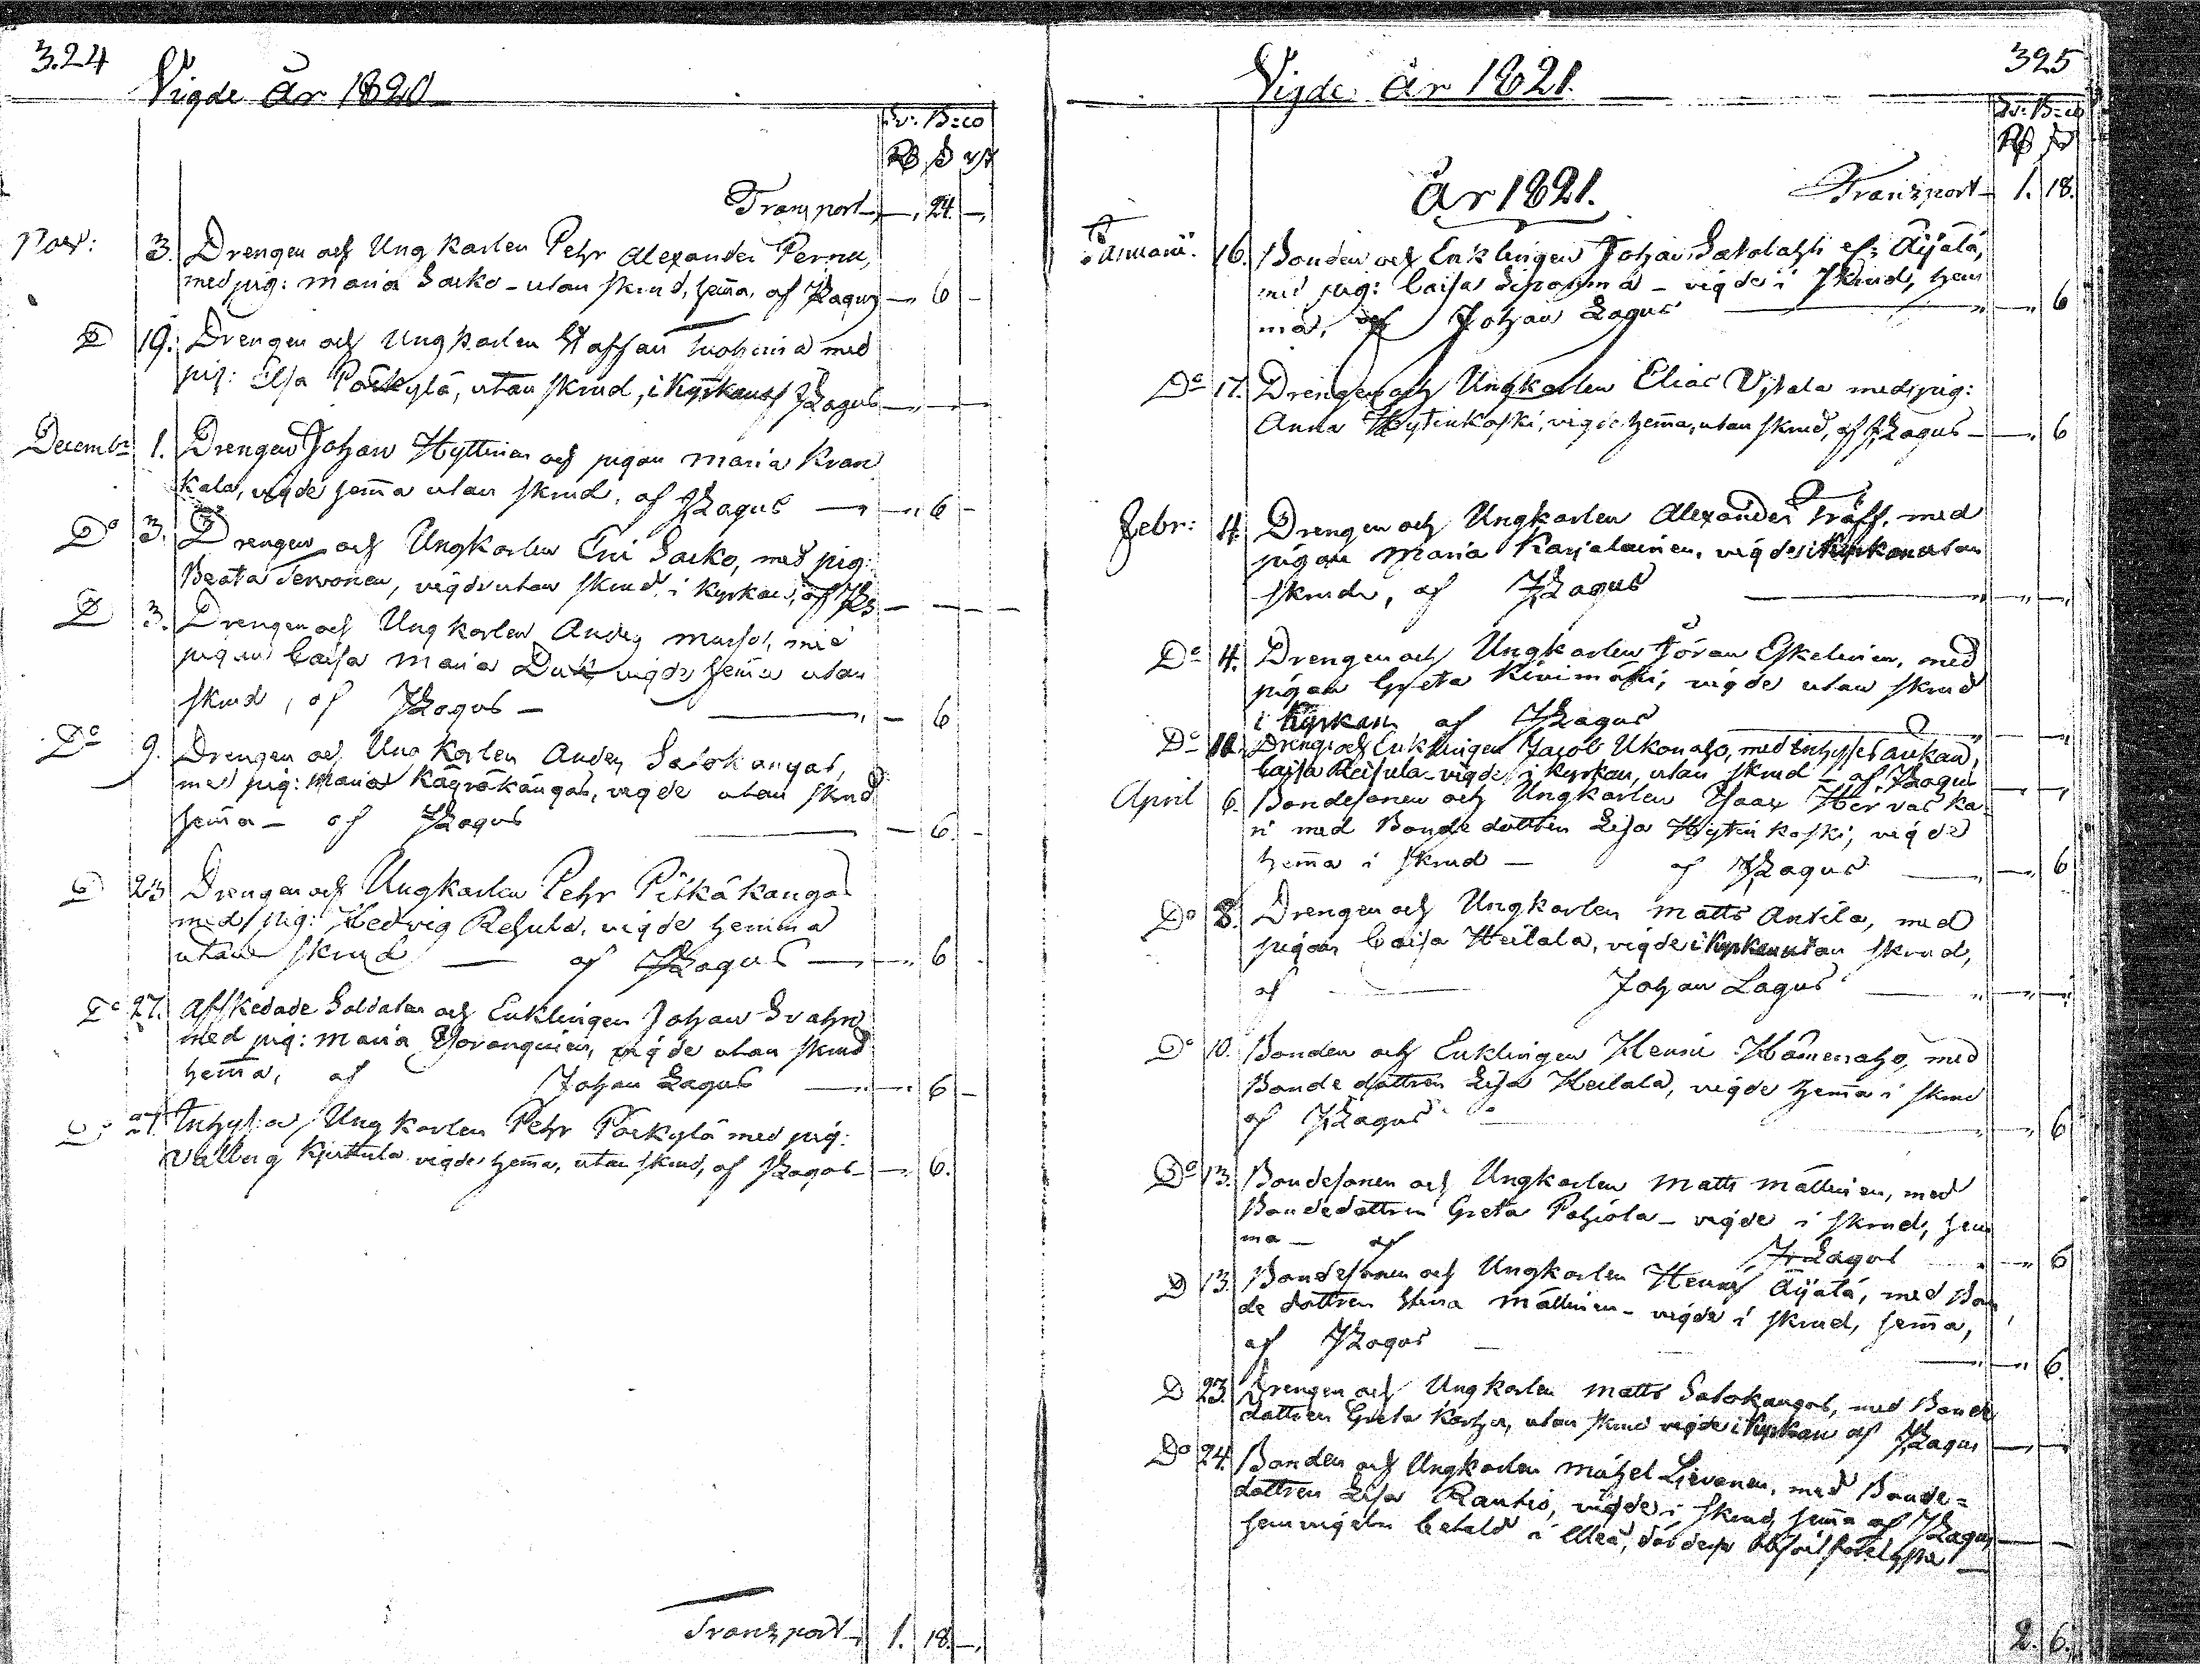 324
Vigde År 1820
Sv: B:co
Transport — 24. —
Nov: 3. Drengen och Ungkarlen Pehr Alexander Pernu,
med pig: Maria Sarko - utan skrud, hem̄a, af JLagus — 6 —
D 19. Drengen och Ungkarlen Staffan Tuohima med
pig: Elsa Päkylä, utan skrud, i Kyrkan af JLagus — —
Decembr 1. Drengen Johan Hyttinen och pigan Maria Kran
kala, vigde hem̄a utan skrud, af JLagus — — 6 —
Do 3. Drengen och Ungkarlen Eric Sarko, med pig:
Beata Tervonen, vigde utan skrud i Kyrkan, af JLs — — —
D 3. Drengen och Ungkarlen Anders Mursu, med
pigan Caisa Maria vigde hem̄a utan
skrud, af JLagus — — 6
Do 9. Drengen och Ungkarlen Anders Salokangas,
med pig: Maria Kägräkangas, vigde utan skrud
hem̄a — af JLagus — 6. —
D 23 Drengen och Ungkarlen Pehr Pitkäkangas
med pig: Hedvig Rehula, vigde hemma
utan skrud — af JLagus — — 6
Do 27. Afskedade Soldaten och Enklingen Johan Svahn
med pig: Maria vigde utan skrud
hem̄a, af Johan Lagus — — 6 —
Do 27. Inhyses Ungkarlen Pehr Päkylä med pig:
Valborg Kjerttula vigde hem̄a, utan skrud, af JLagus — — 6.
Transport — 1. 18. —
325
Vigde År 1821.
Sv: B:co
År 1821. Transport — 1. 18.
Januarii 16. Bonden och Enklingen Johan Äijälä,
med pig: Caisa — vigde i skrud, hem
ma, af Johan Lagus — — 6
Do 17. Drengen och Ungkarlen Elias Ylitala med pig:
Anna Hytinkoski, vigde hem̄a, utan skrud, af JLagus — — 6
Febr: 4. Drengen och Ungkarlen Alexander Träff, med
pigan Maria Karjalainen, vigde i Kyrkan utan
skrud, af JLagus — — —
Do 4. Drengen och Ungkarlen Jöran Eskelinen, med
pigan Greta Kinimäki, vigde utan skrud
i Kyrkan af JLagus — — —
Do 11. Dreng: och Enklingen Jacob Ukonaho, med Inhyses ankan,
Caisa Reisula - vigde i Kyrkan, utan skrud — af JLagus — —
April 6. Bondesonen och Ungkarlen Isaac Hervaska
ri med Bonde dottren Lisa Hytinkoski, vigde
hem̄a i skrud — af JLagus — — 6
Do 8. Drengen och Ungkarlen Matts Antila, med
pigan Caisa Heilala, vigde i Kyrkan utan skrud,
af — Johan Lagus — — —
Do 10. Bonden och Enklingen Henric Hämenaho, med
Bonde dottren Lisa Heilala, vigde hem̄a i skrud
af JLagus — — 6
Do 13. Bondesonen och Ungkarlen Matts Mällinen, med
Bondedottren Greta Pohjola — vigde i skrud, hem
ma — af JLagus — 6
D 13. Bondesonen och Ungkarlen Henric Äijälä, med Bon
de dottren Stina Mällinen - vigde i skrud, hem̄a,
af JLagus — — 6.
D 23. Drengen och Ungkarlen Matts Salokangas, med Bonde
dottren Greta Karhu, utan skrud vigde i Kyrkan af JLagus — —
Do 24. Bonden och Ungkarlen Michel Lievonen, med Bonde=
dottren Lisa Rautio, vigde i skrud, hem̄a af JLagus — —
hemvigeln betald i Uleå,
2. 6.